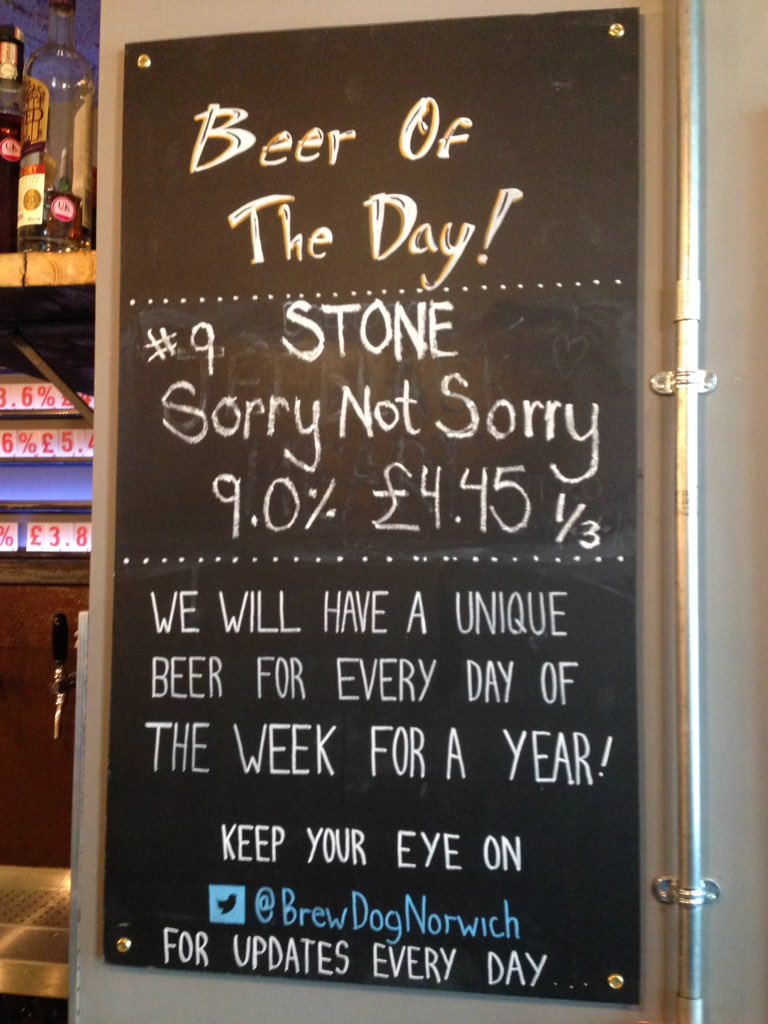 Beer Of
The Day!
#9 STONE
Sorry Not Sorry
9.0% £4.45 1/3
WE WILL HAVE A UNIQUE
BEER FOR EVERY DAY OF
THE WEEK FOR A YEAR!
KEEP YOUR EYE ON
@BrewDogNorwich
FOR UPDATES EVERY DAY...
3.6%
6% £5.4
% £3.8